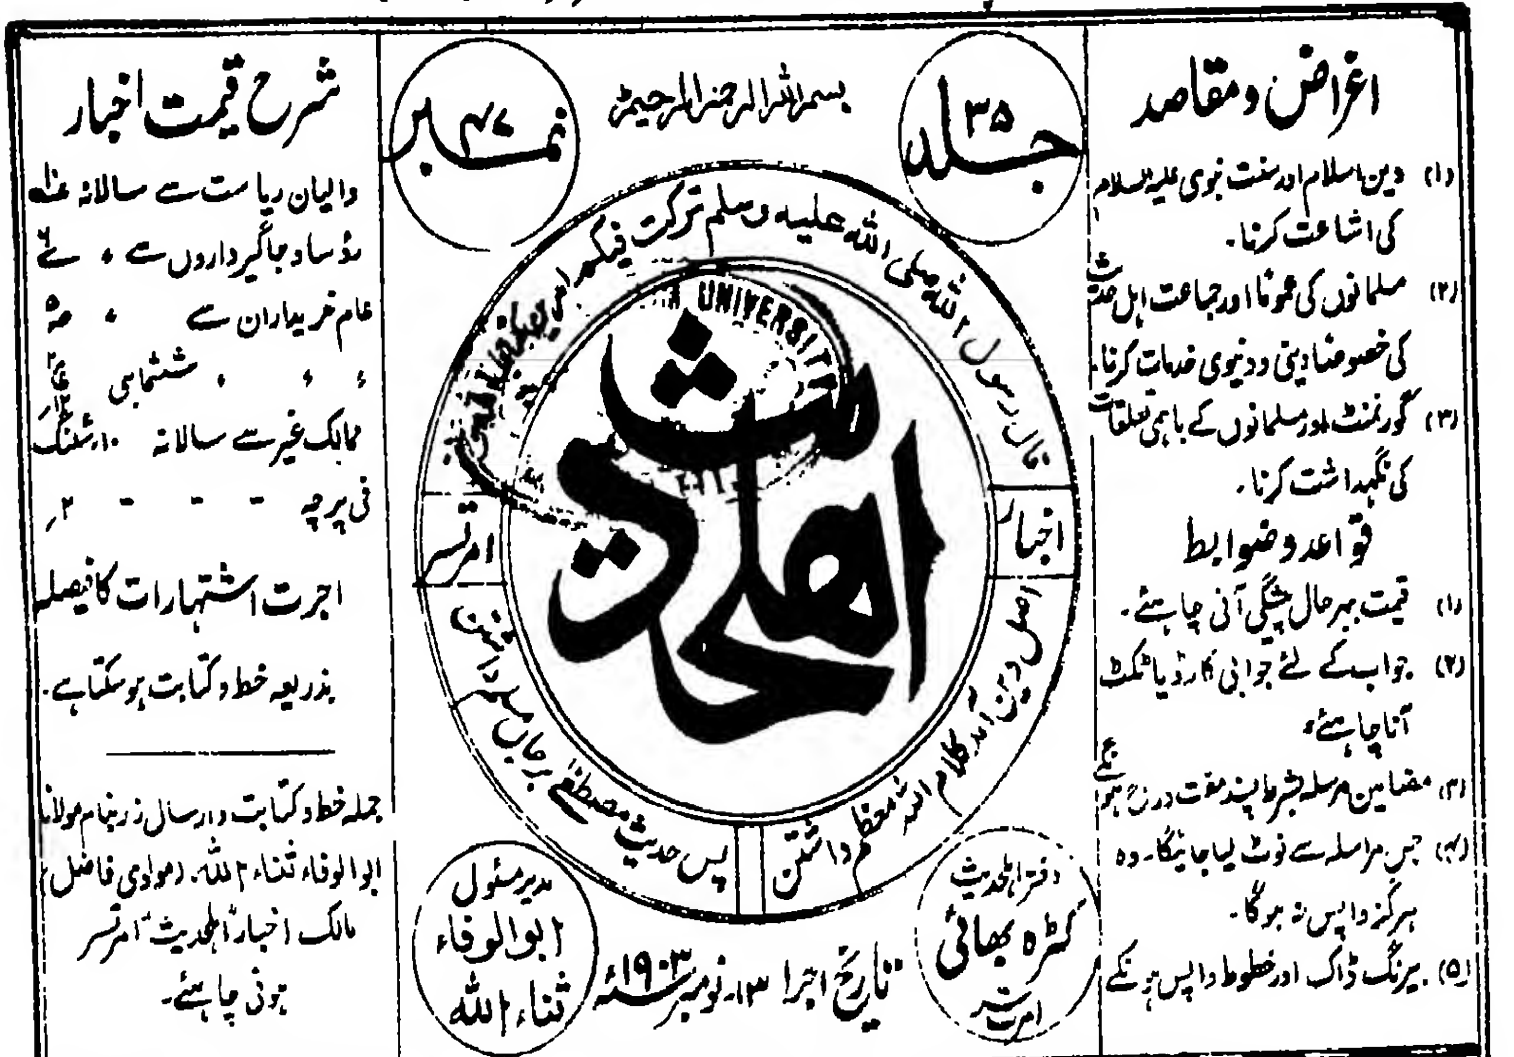 اغراض و مقاصد
(۱) دین اسلام اور سنت نبوی علیہ السلام
کی اشاعت کرنا۔
(۲) مسلمانوں کی عموماً اور جماعت اہل حدیث
کی خصوصاً دینی و دنیوی خدمات کرنا۔
(۳) گورنمنٹ اور مسلمانوں کے باہمی تعلقات
کی نگہداشت کرنا۔
قواعد و ضوابط
(۱) قیمت بہرحال پیشگی آنی چاہئے۔
(۲) جواب کے لئے جوابی کارڈ یا ٹکٹ
آنا چاہئے۔
(۳) مضامین مرسلہ بشرط پسند مفت درج ہونگے
(۴) جس مراسلہ سے نوٹ لیا جائیگا۔ وہ
ہرگز واپس نہ ہوگا۔
(۵) بیرنگ ڈاک اور خطوط واپس ہونگے
جلد ۳۵
بسم اللہ الرحمن الرحیم
نمبر ۴۷
قال رسول اللہ صلی اللہ علیہ وسلم ترکت فیکم امرین
اخبار
اهلحدیث
امرتسر
UNIVERSITY
اصل دین آمد کلام اللہ معظم داشتن
پس حدیث مصطفےٰ بر جاں مسلم داشتن
دفتر اہلحدیث
کٹرہ بھائی
امرت سر
تاریخ اجرا ۱۳۔نومبر ۱۹۰۳ء
مدیر مسئول
ابوالوفاء
ثناء اللہ
شرح قیمت اخبار
والیان ریاست سے سالانہ
رؤسا و جاگیرداروں سے
عام خریداران سے
ششماہی
ممالک غیر سے سالانہ ۱۰ شلنگ
فی پرچہ - - - ۲؍
اجرت اشتہارات کا فیصلہ
بذریعہ خط و کتابت ہو سکتا ہے۔
جملہ خط و کتابت و ارسال زر بنام مولانا
ابوالوفاء ثناء اللہ۔ (مولوی فاضل)
مالک اخبار "اہلحدیث" امرتسر
ہونی چاہئے۔